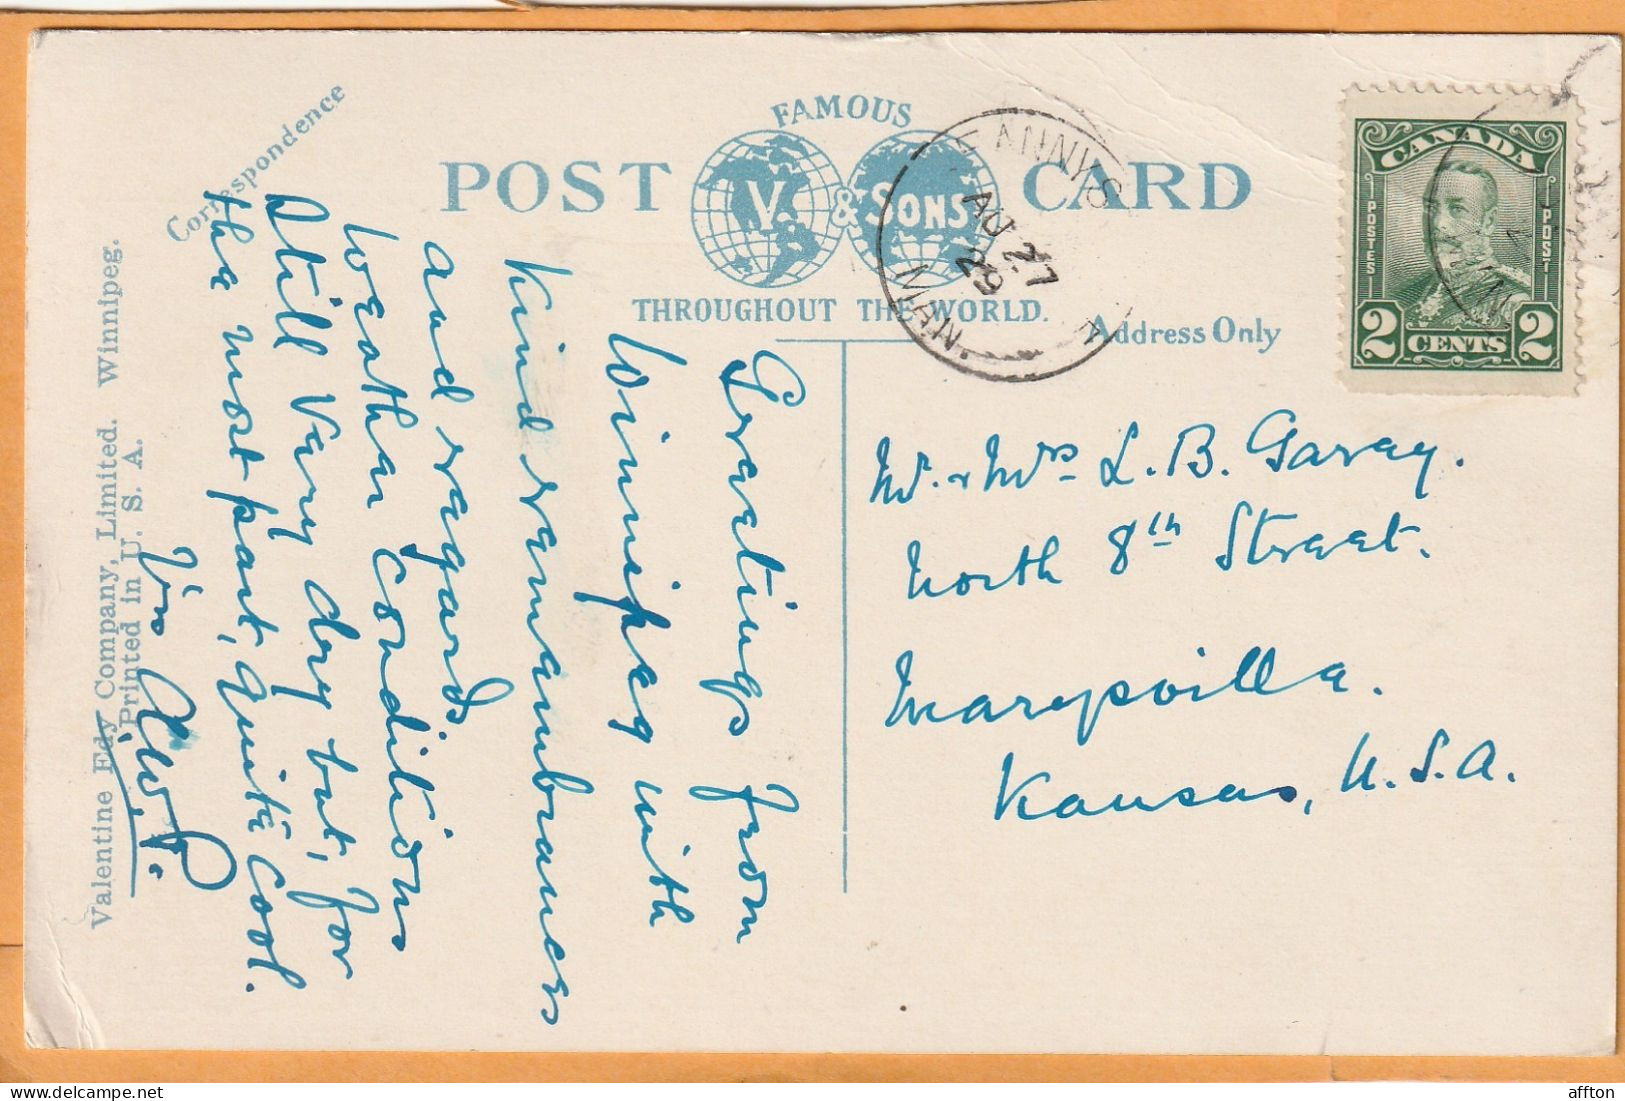 FAMOUS
POST CARD
V. & SONS
THROUGHOUT THE WORLD.
Correspondence
Address Only
CANADA
POSTES POST
2 CENTS 2
AU 27
29
MAN.
Greetings from
Winnipeg with
kind remembrances
and regards.
Weather conditions
Still Very dry but, for
the most part, quite cool.
Mr. & Mrs L. B. Garvey.
North 8th Street.
Marysville.
Kansas, U.S.A.
Valentine Edy Company, Limited. Winnipeg.
Printed in U. S. A.
affton